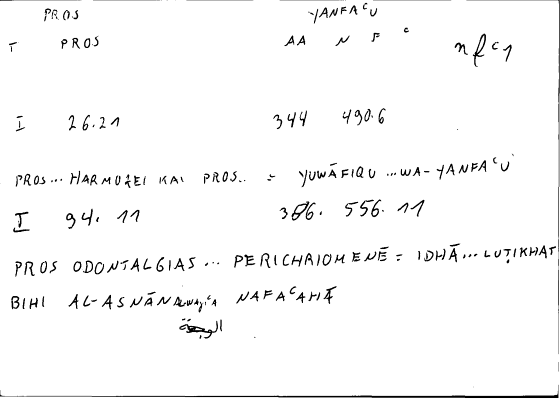 PROS YANFAᶜU
T PROS AA N F ᶜ nfᶜ1
I 26.21 344 490.6
PROS... HARMOZEI KAI PROS.. = YUWĀFIQU ...WA-YANFAᶜU
I 94. 11 306. 556. 11
PROS ODONTALGIAS ... PERICHRIOMENĒ = IDHĀ... LUṬIKHAT
BIHI AL-ASNĀN ALWAJIᶜA NAFAᶜAHĀ